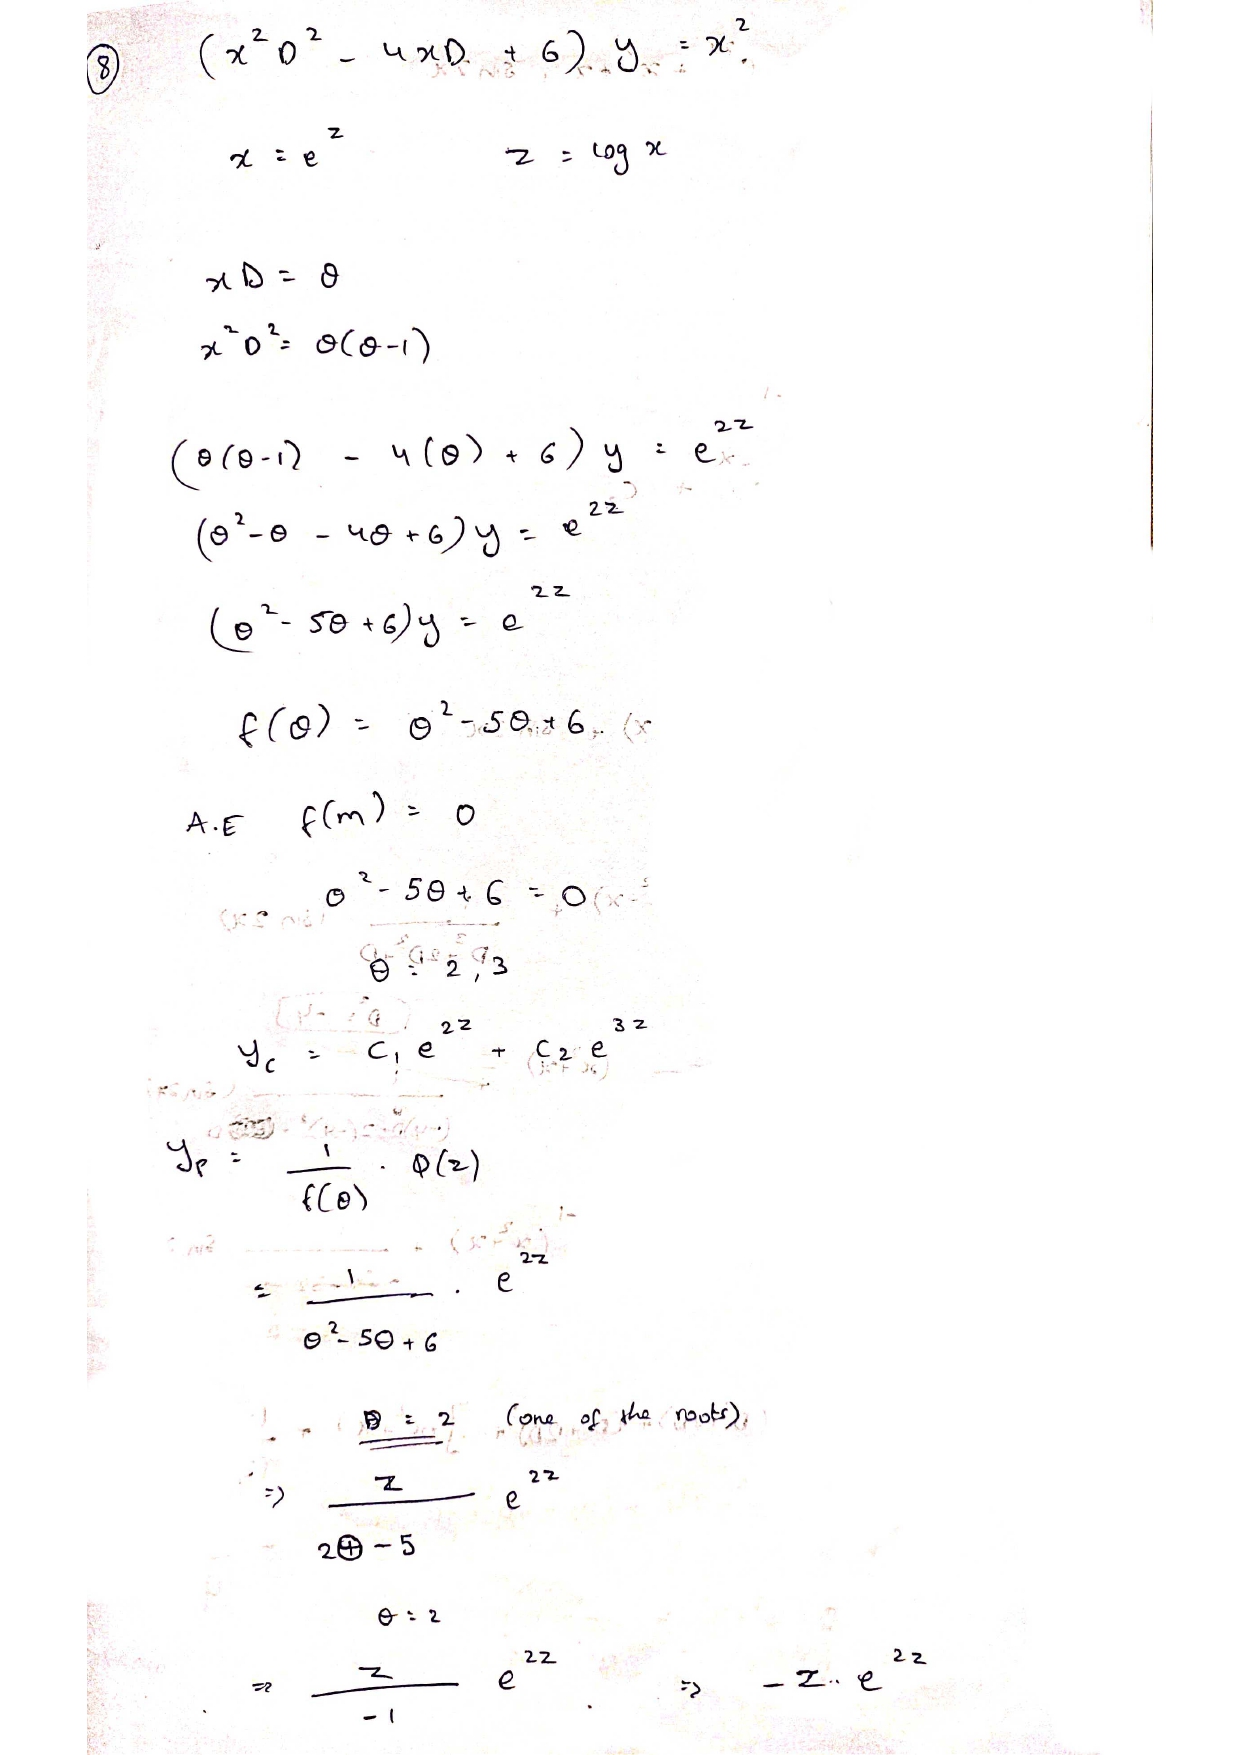 ⑧ (x²D² - 4xD + 6) y = x².
x = e^z z = log x
xD = θ
x²D² = θ(θ-1)
(θ(θ-1) - 4(θ) + 6) y = e^2z
(θ²-θ - 4θ+6)y = e^2z
(θ²- 5θ+6)y = e^2z
f(θ) = θ²-5θ+6
A.E f(m) = 0
θ²- 5θ+6 = 0
θ = 2,3
y_c = C₁e^2z + C₂e^3z
y_p = 1/f(θ) . Q(z)
= 1/(θ²-5θ+6) . e^2z
D = 2 (one of the roots)
=> z/(2θ-5) e^2z
θ = 2
=> z/-1 e^2z => -z. e^2z